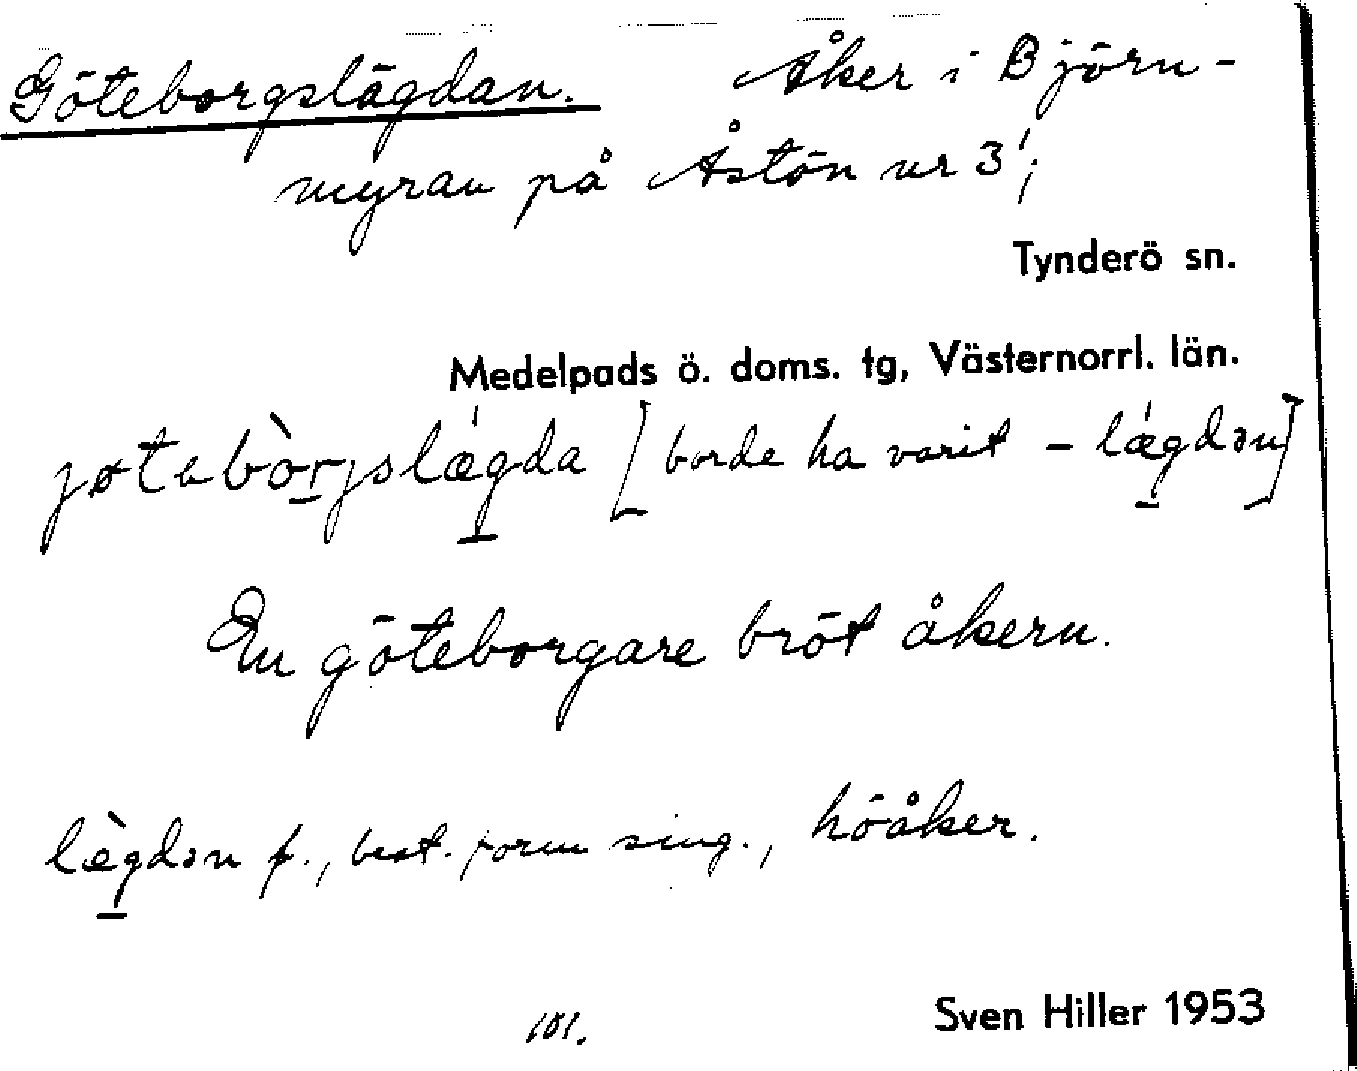 Göteborgslägdan. Åker i Björn-
myran på Åstön nr 3¹;
Tynderö sn.
Medelpads ö. doms. tg, Västernorrl. län.
jøtebòrjslǽgda [borde ha varit – lǽgdən]
En göteborgare bröt åkern.
læ̀gdən f., best. form sing., höåker.
101.
Sven Hiller 1953